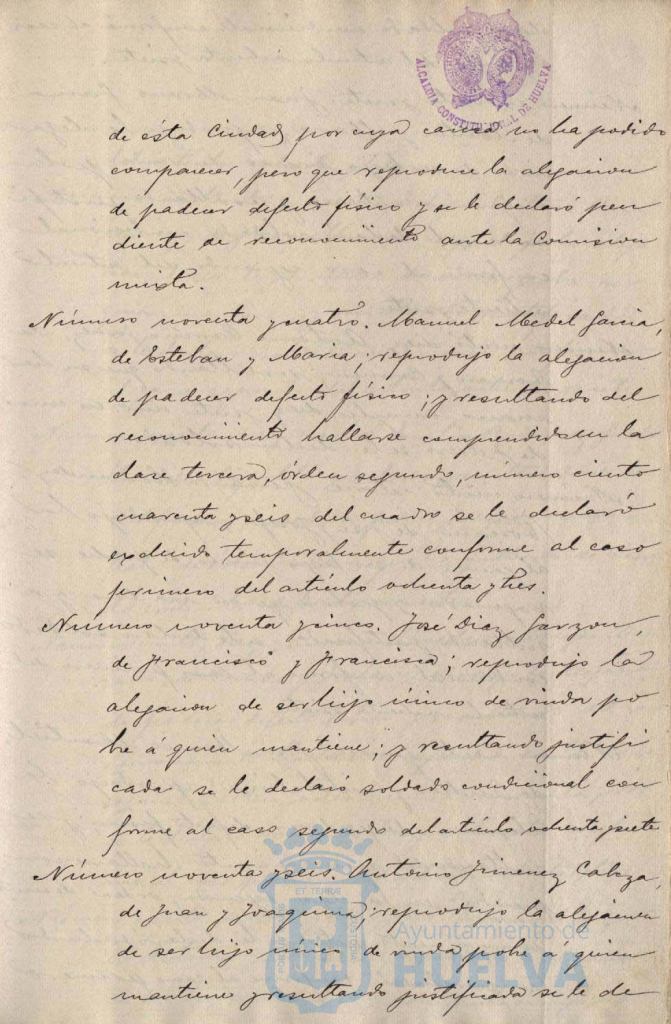 ALCALDIA CONSTITUCIONAL DE HUELVA
de ésta Ciudad, por cuya causa no ha podido
comparecer, pero que reproduce la alegacion
de padecer defecto físico y se le declaró pen
diente de reconocimiento ante la Comision
mixta.
Número noventa y cuatro. Manuel Medel Garcia,
de Esteban y Maria; reprodujo la alegacion
de padecer defecto físico; y resultando del
reconocimiento hallarse comprendido en la
clase tercera, órden segundo, número ciento
cuarenta y seis del cuadro se le declaró
excluido temporalmente conforme al caso
primero del artículo ochenta y tres.
Número noventa y cinco. José Diaz Garzon,
de Francisco y Francisca; reprodujo la
alegacion de ser hijo único de viuda po
bre á quien mantiene; y resultando justifi
cada se le declaró soldado condicional con
forme al caso segundo del artículo ochenta y siete
Número noventa y seis. Antonio Jimenez
de Juan y Joaquina; reprodujo la alegacion
de ser hijo único de viuda pobre á quien
mantiene y resultando justificada se le de
Ayuntamiento de
HUELVA